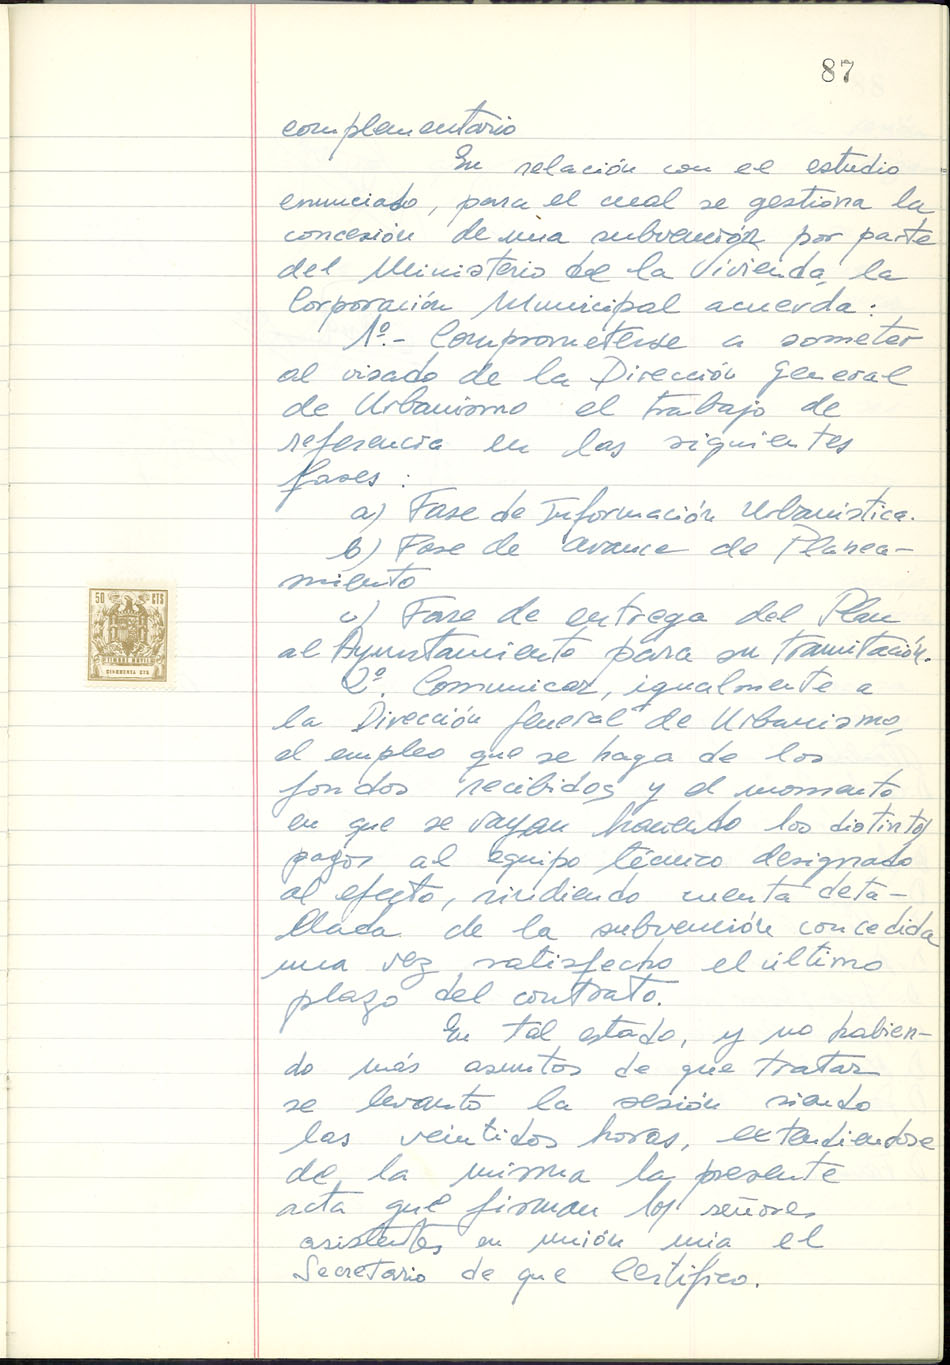 87
complementario
En relación con el estudio
enunciado, para el cual se gestiona la
concesión de una subvención por parte
del Ministerio de la Vivienda, la
Corporación Municipal acuerda:
1º.- Comprometerse a someter
al visado de la Dirección General
de Urbanismo el trabajo de
referencia en las siguientes
fases:
a) Fase de Información Urbanistica.
b) Fase de avance de Planea-
miento
c) Fase de entrega del Plan
al Ayuntamiento para su tramitación.
2º. Comunicar, igualmente a
la Dirección General de Urbanismo,
el empleo que se haga de los
fondos recibidos y el momento
en que se vayan haciendo los distintos
pagos al equipo técnico designado
al efecto, rindiendo cuenta deta-
llada de la subvención concedida
una vez satisfecho el último
plazo del contrato.
En tal estado, y no habien-
do más asuntos de que tratar
se levanto la sesión siendo
las veintidos horas, extendiendose
de la misma la presente
acta que firman los señores
asistentes en unión mia el
Secretario de que Certifico.
50 CTS
TIMBRE MOVIL
CINCUENTA CTS